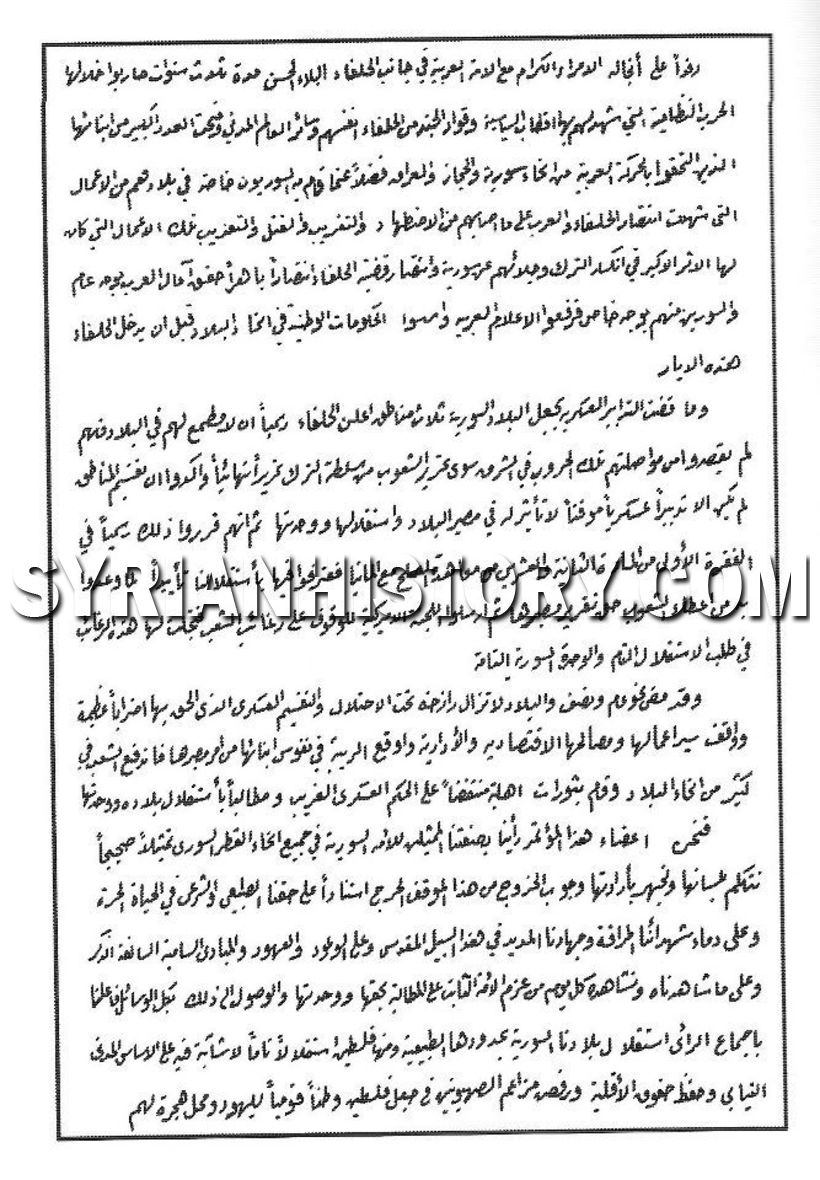 على أنجاله الامراء الكرام مع الامة العربية في جانب الحلفاء البلاء الحسن مدة ثلاث سنوات حاربوا خلالها
الحرب النظامية التي شهد لهم بها اقطاب السياسة وقواد الجند من الحلفاء انفسهم وسائر العالم المدني وضحت العدد الكبير من ابنائها
الذين التحقوا بالحركة العربية من انحاء سورية والحجاز والعراق فضلاً عما قام به السوريون خاصة في بلادهم من الاعمال
التي شهدت انتصار الحلفاء والعرب على ما اصابهم من الاضطهاد والتغريب والقتل والتعذيب تلك الاعمال التي كان
لها الاثر الاكبر في انكسار الترك وجلائهم عن سورية وانتصار قضية الحلفاء انتصاراً باهراً حقق آمال العرب بوجه عام
والسوريين منهم بوجه خاص فرفعوا الاعلام العربية واسسوا الحكومات الوطنية في انحاء البلاد قبل ان يدخل الحلفاء
هذه الديار
وما قضت التدابير العسكرية بجعل البلاد السورية ثلاث مناطق اعلن الحلفاء رسمياً ان لا مطمع لهم في البلاد وانهم
لم يقصدوا من مواصلتهم تلك الحروب في الشرق سوى تحرير الشعوب من سلطة الترك تحريراً نهائياً واكدوا ان تقسيم المناطق
لم يكن الا تدبيراً عسكرياً موقتاً لا تأثير له في مصير البلاد واستقلالها ووحدتها ثم انهم قرروا ذلك رسمياً في
الفقرة الأولى من المادة الثانية والعشرين من معاهدة الصلح مع المانيا فعترفوا فيها بأستقلالنا تأييداً لما وعدوا
به من اعطاء الشعوب حق تقرير مصيرها ثم ارسلوا اللجنة الاميركية للوقوف على رغائب الشعب فتجلت لها هذه الرغائب
في طلب الاستقلال التام والوحدة السورية التامة
وقد مضى نحو عام ونصف والبلاد لا تزال رازخة تحت الاحتلال والتقسيم العسكري الذي الحق بها اضراراً عظيمة
وواقف سير اعمالها ومصالحها الاقتصادية والأدارية واوقع الريبة في نفوس ابنائها من امر مصيرها فاندفع الشعب في
كثير من انحاء البلاد وقام بثورات اهلية منتقضاً على الحكم العسكري الغريب ومطالباً بأستقلال بلاده ووحدتها
فنحن اعضاء هذا المؤتمر رأينا بصفتنا الممثلين للامة السورية في جميع انحاء القطر السوري تمثيلاً صحيحاً
نتكلم بلسانها ونجهر بأرادتها وجوب الخروج من هذا الموقف الحرج استناداً على حقنا الطبيعي والشرعي في الحياة الحرة
وعلى دماء شهدائنا المراقة وجهادنا المديد في هذا السبيل المقدس وعلى الوعود والعهود والمبادئ السامية السالفة الذكر
وعلى ما شاهدناه ونشاهده كل يوم من عزم الأمة الثابت على المطالبة بحقها ووحدتها والوصول الى ذلك بكل الوسائل فاعلنا
باجماع الرأي استقلال بلادنا السورية بحدودها الطبيعية ومنها فلسطين استقلالاً تاماً لا شائبة فيه على الاساس المدني
النيابي وحفظ حقوق الأقلية ورفض مزاعم الصهيونيين في جعل فلسطين وطناً قومياً لليهود ومحل هجرة لهم
SYRIANHISTORY.COM